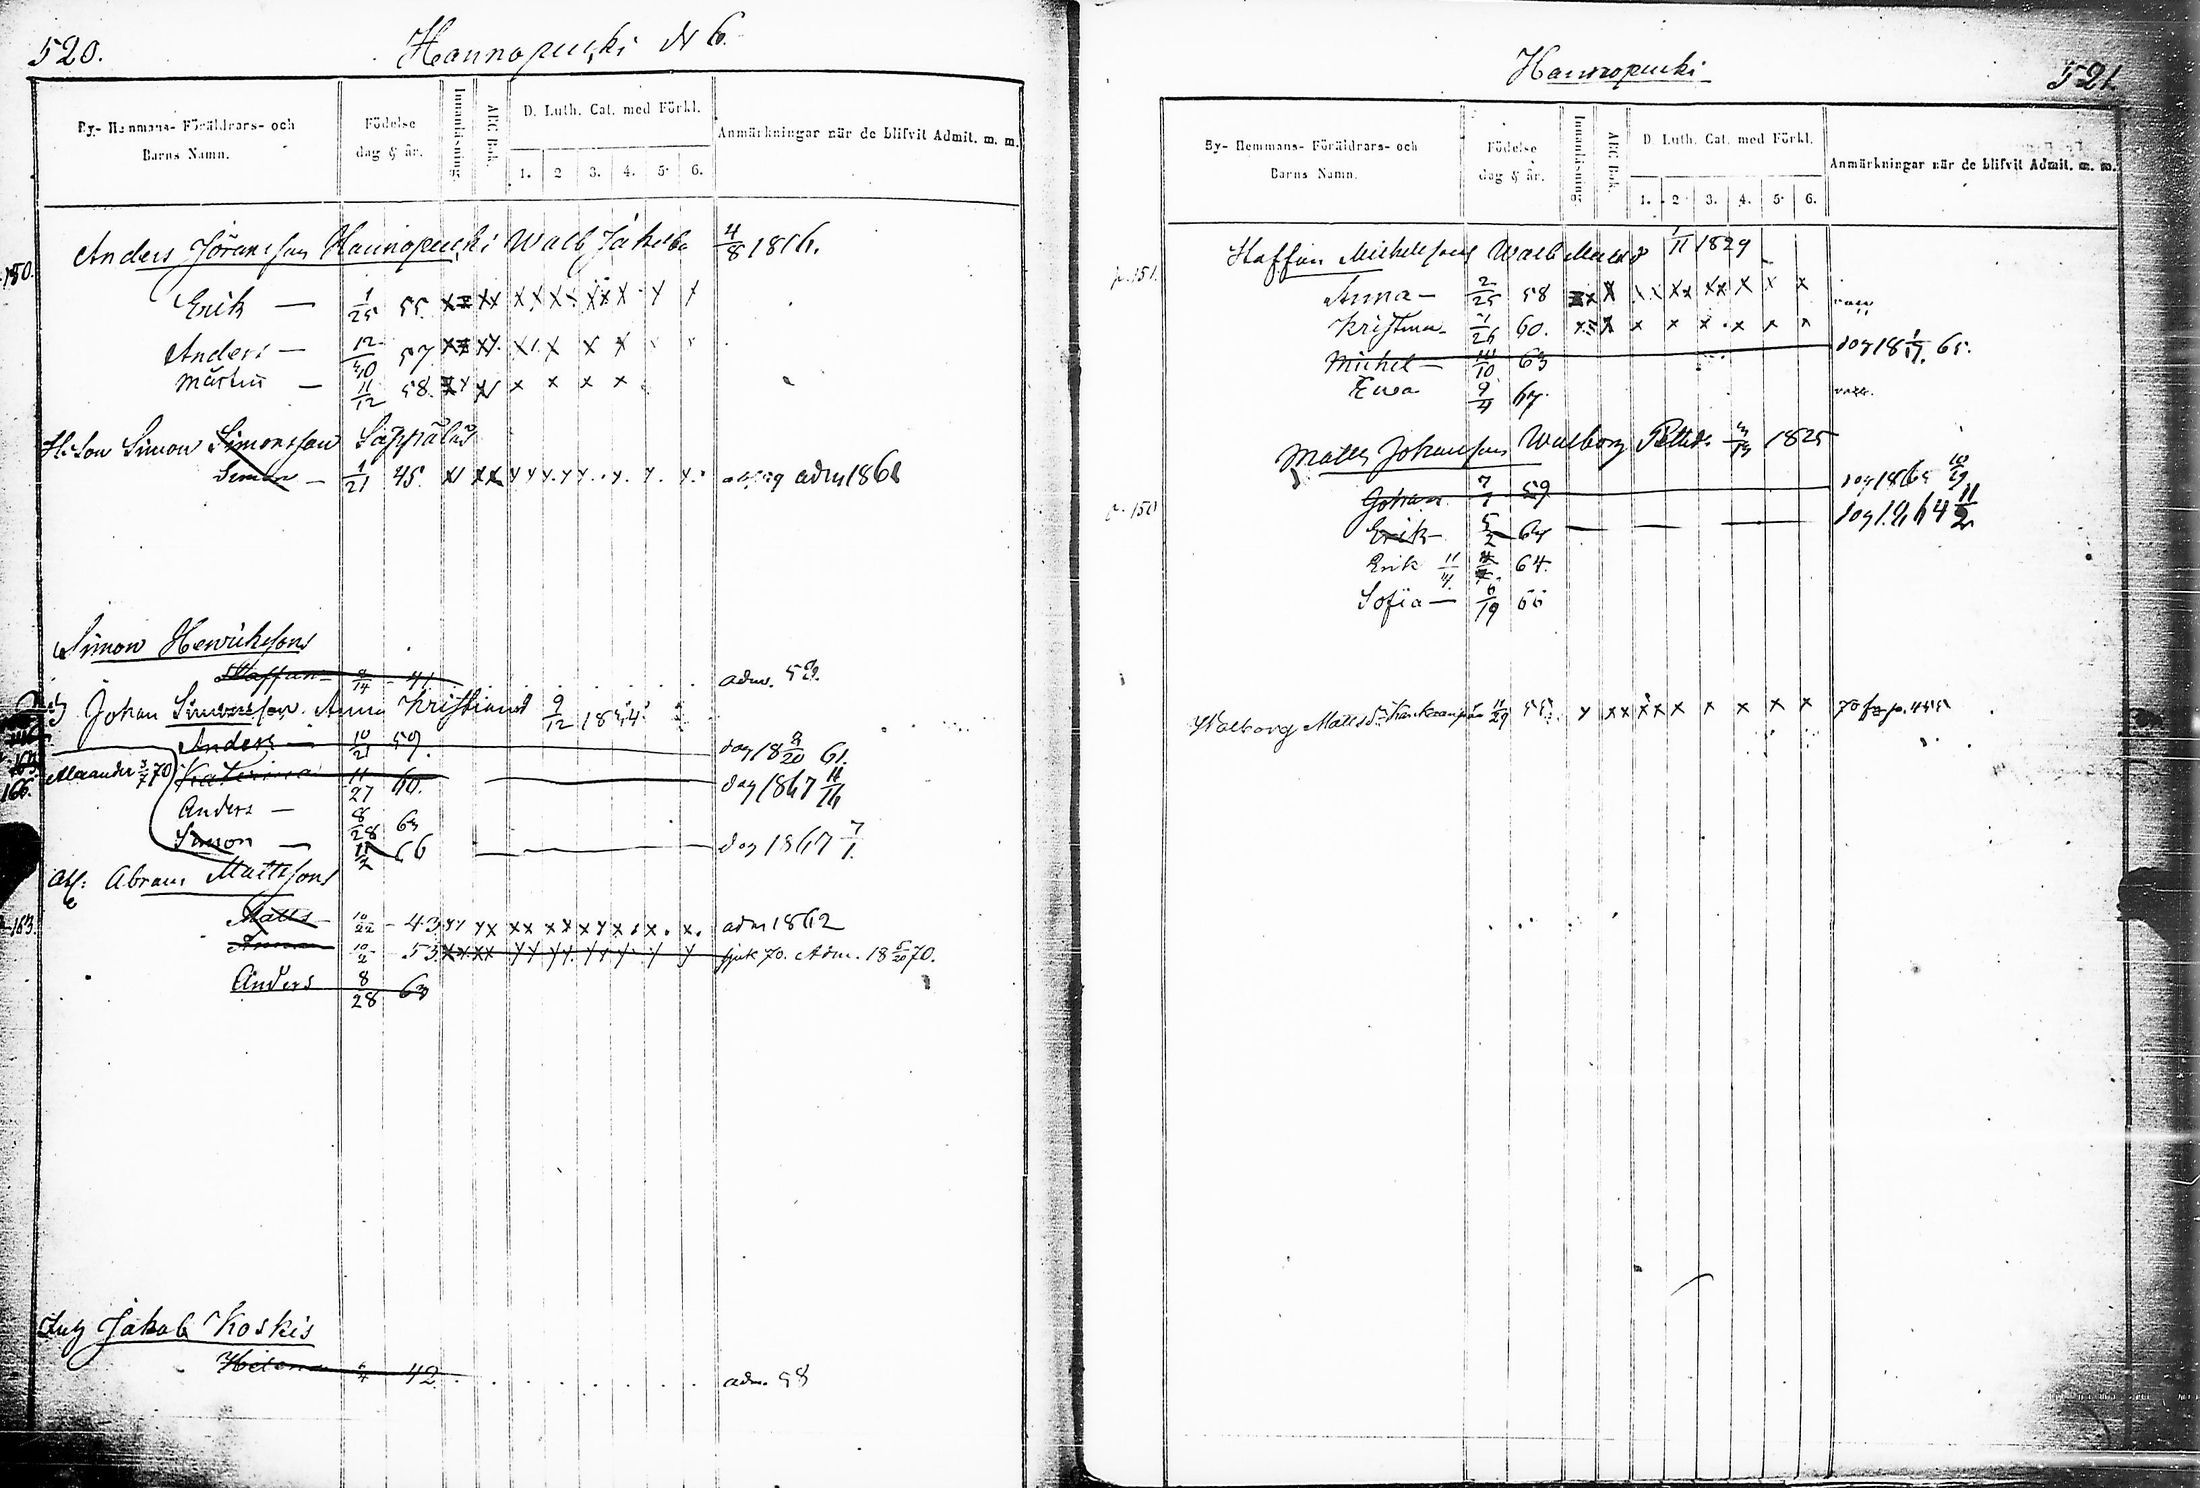 520.
Hannopucki № 6.
By- Hemmans- Föräldrars- och Barns Namn.
Födelse dag & år.
Innanläsning
ABC Bok.
D. Luth. Cat. med Förkl.
1. 2 3. 4. 5. 6.
Anmärkningar när de blifvit Admit. m. m.
150.
Anders Jöransson Hannopucki Walb Jakobs 4/8 1816.
Erik — 1/25 55. x x x x x x x x x x
Anders — 12/30 57 x x x x x x
Mårten — 11/12 58. x x x x x x
Simon Simonsson Säppälas
Simon — 1/21 45. x x x x adm 1861
Simon Henrikssons
Staffan — 2/14 - 41 adm. 58.
Johan Simonsson. Anna Kristiansd 9/12 1834
Anders — 10/21 59. dog 18 9/20 61.
166.
Alexander 3/7 70
Katarina 11/27 60. dog 1867 11/16
Anders — 8/28 63
Simon — 11/2 66 dog 1867 7/1.
Abram Mattssons
163
Matts — 10/22 - 43 x x x x x x x x adm 1862
Anna 10/2 - 53 x x x x x x x x 70. Adm. 18 5/20 70.
Anders 8/28 63
Jakob Koskis
Helena 42. adm. 58
Hannopucki
521.
By- Hemmans- Föräldrars- och Barns Namn.
Födelse dag & år.
Innanläsning
ABC Bok.
D. Luth. Cat. med Förkl.
1. 2 3. 4. 5. 6.
Anmärkningar när de blifvit Admit. m. m.
p. 151.
Staffan Michelssons Walb Matsd 1/11 1829
Anna — 2/25 58 x x x x x x x x
Kristina 1/26 60. x x x x x x x x
Michel — 10/10 63 dog 18 1/17. 65.
Ewa 9/4 67.
Matts Johanssons Walborg Pettersd. 1825
p. 150
Johan 59 dog 1865 10/19
Erik 5/2 dog 1864 11/2
Erik 11/4. 64.
Sofia — 6/19 66
Walborg Mattsd. 11/29 55. x x x x x x x x x x